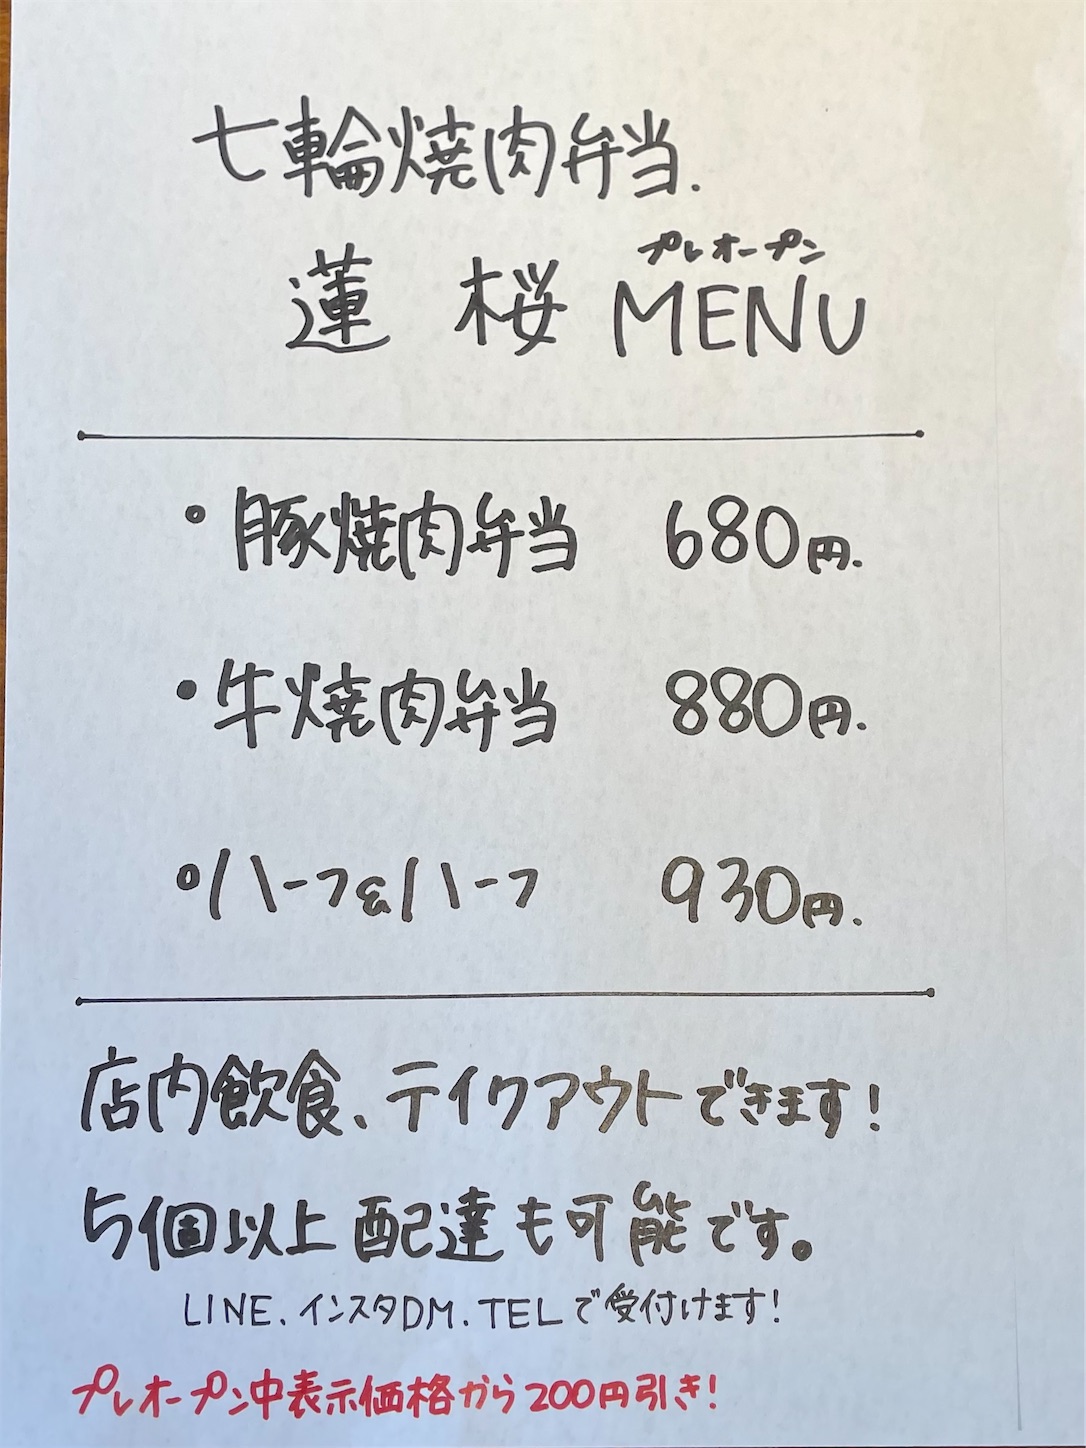 七輪焼肉弁当.
プレオープン
蓮 桜 MENU
・豚焼肉弁当 680円.
・牛焼肉弁当 880円.
・ハーフ&ハーフ 930円.
店内飲食、テイクアウトできます!
5個以上配達も可能です。
LINE、インスタDM.TELで受付けます!
プレオープン中表示価格から200円引き!